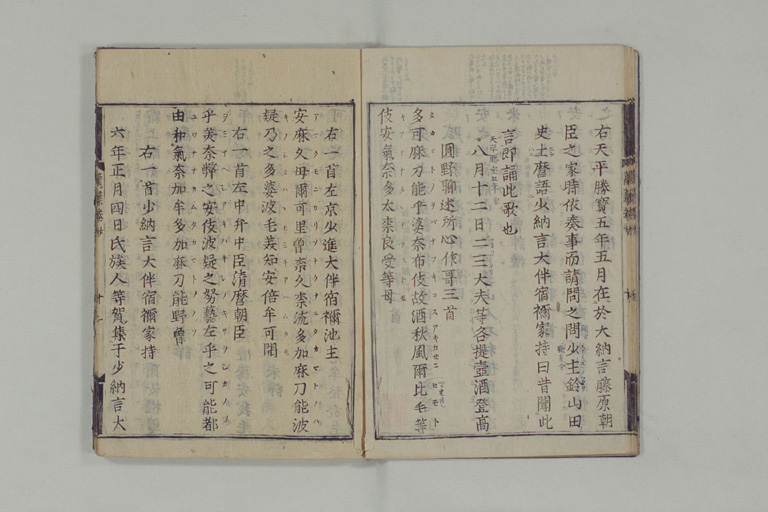 右天平勝寶五年五月在於大納言藤原朝
臣之家時依奏事而請問之間少主鈴山田
史土麿語少納言大伴宿禰家持曰昔聞此
言即誦此歌也
八月十二日二三大夫等各提壺酒登高
圓野聊述所心作哥三首
多可麻刀能乎婆奈布伎故酒秋風爾比毛等
伎安氣奈多太奈良受等母
右一首左京少進大伴宿禰池主
安麻久母爾可里曾奈久奈流多加麻刀能波
疑乃之多婆波毛美知安倍牟可聞
右一首左中弁中臣清麿朝臣
乎美奈弊之安伎波疑之努藝左乎之可能都
由和氣奈加牟多加麻刀能野曾
右一首少納言大伴宿禰家持
六年正月四日氏族人等賀集于少納言大